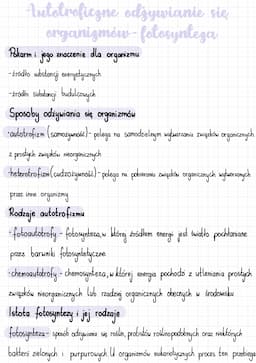 Autotroficzne odżywianie się
organizmów - fotosynteza
Pokarm i jego znaczenie dla organizmu
-źródło substancji energetycznych
-źródło substancji budulcowych
Sposoby odżywiania się organizmów
-autotrofizm (samożywność) - polega na samodzielnym wytwarzaniu związków organicznych
z prostych związków nieorganicznych
-heterotrofizm (cudzożywność) - polega na pobieraniu związków organicznych wytworzonych
przez inne organizmy
Rodzaje autotrofizmu
-fotoautotrofy - fotosynteza, w której źródłem energii jest światło pochłaniane
przez barwniki fotosyntetyczne
-chemoautotrofy - chemosynteza, w której energia pochodzi z utleniania prostych
związków nieorganicznych lub rzadziej organicznych obecnych w środowisku
Istota fotosyntezy i jej rodzaje
fotosynteza - sposób odżywiania się roślin, protistów roślinopodobnych oraz niektórych
bakterii zielonych i purpurowych. U organizmów eukariotycznych proces ten przebiega